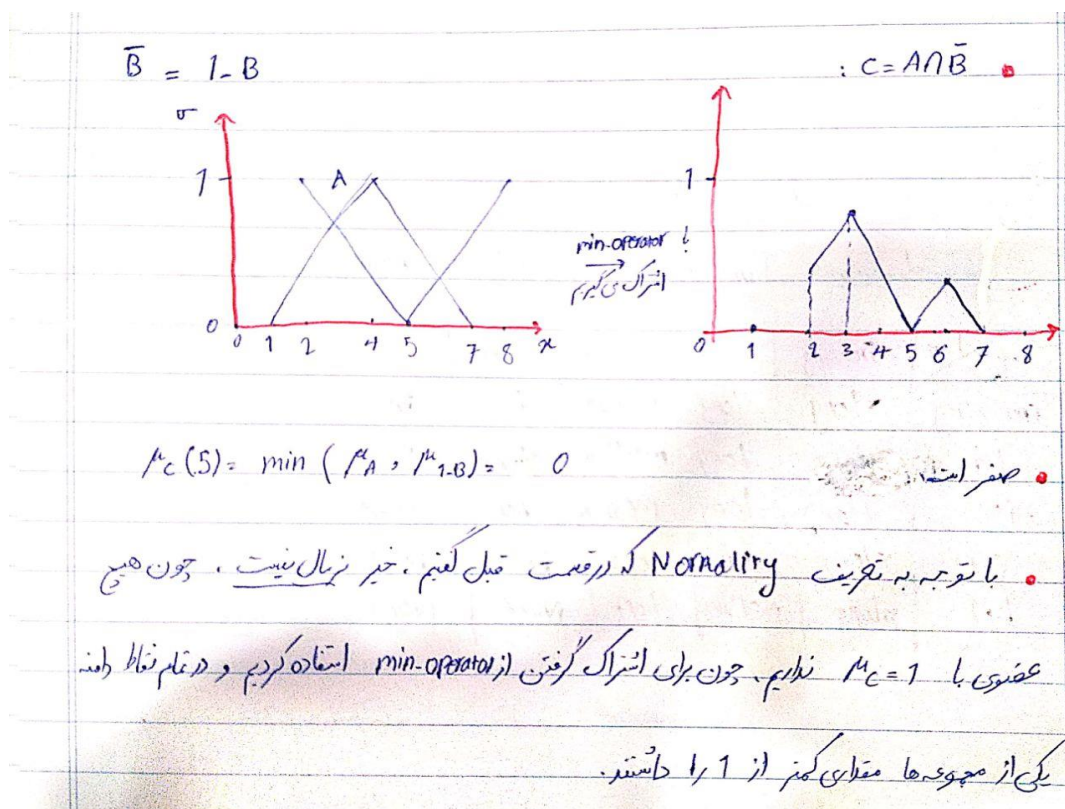 : C = A ∩ B̄
B̄ = 1 - B
σ
1
A
0
0 1 2 4 5 7 8 x
با min-operator
اشتراک می گیریم
1
0 1 2 3 4 5 6 7 8
صفر است. μc(5) = min (μA , μ1-B) = 0
با توجه به تعریف Normality که در قسمت قبل گفتیم ، خیر نرمال نیست ، چون هیچ
عضوی با μc = 1 نداریم ، چون برای اشتراک گرفتن از min-operator استفاده کردیم و در تمام نقاط دامنه
یکی از مجموعه ها مقداری کمتر از 1 را داشتند.